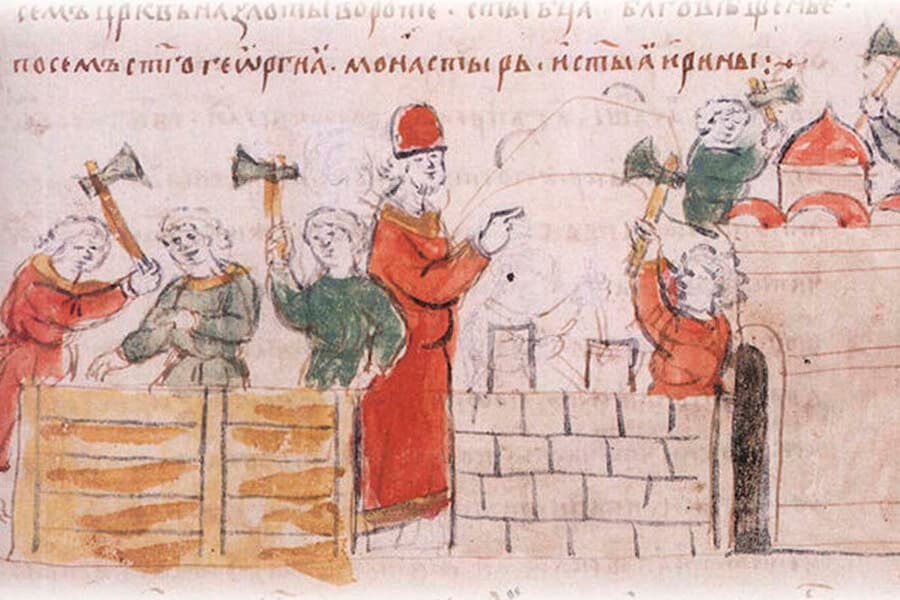 семъ црквъ на злоты воротѣ · ст҃ы бц҃а благовѣщенье ·
посемъ ст҃го геѡргиѧ · монастырь · и ст҃ыѧ ирины :~